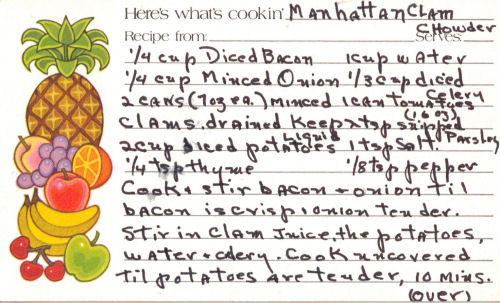 Here's what's cookin' Manhattan Clam
Chowder
Recipe from: Serves:
1/4 cup Diced Bacon 1 cup water
1/4 cup Minced Onion 1/3 cup diced
Celery
2 cans (7oz ea.) minced 1 can tomatoes
(16 oz)
clams, drained Keep 2 tsp snipped
Liquid Parsley
2 cup diced potatoes 1 tsp salt.
1/4 tsp thyme 1/8 tsp pepper
Cook & stir bacon & onion til
bacon is crisp & onion tender.
Stir in clam juice, the potatoes,
water & celery. Cook uncovered
til potatoes are tender, 10 mins.
(over)